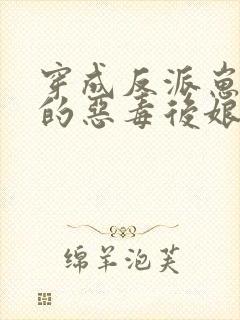 穿成反派崽崽
的惡毒後娘
绵羊泡芙